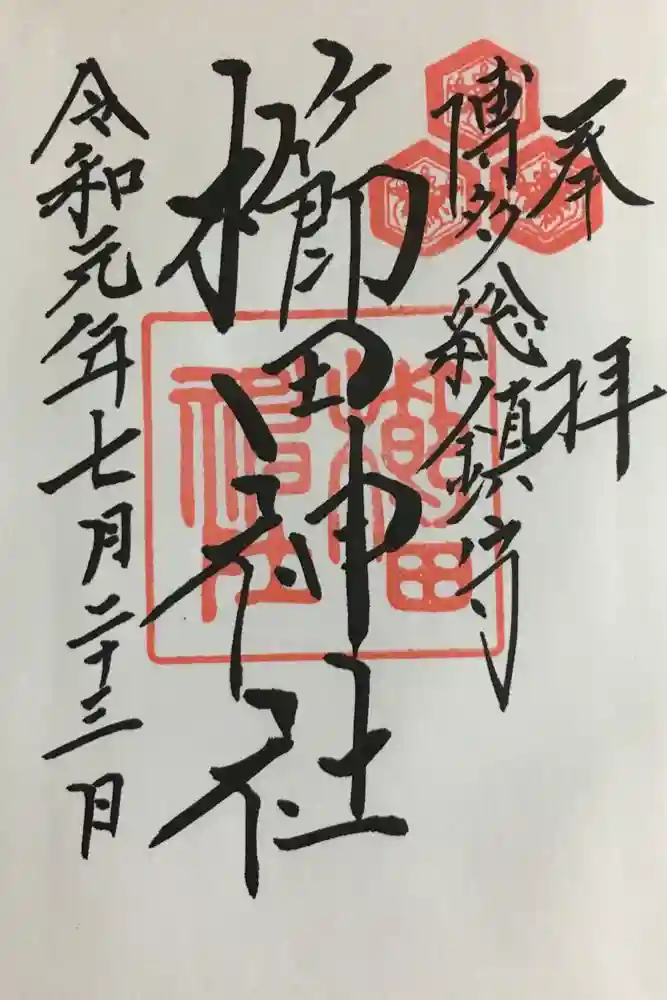 奉拝
博多総鎮守
櫛田神社
令和元年七月二十三日
櫛田神社